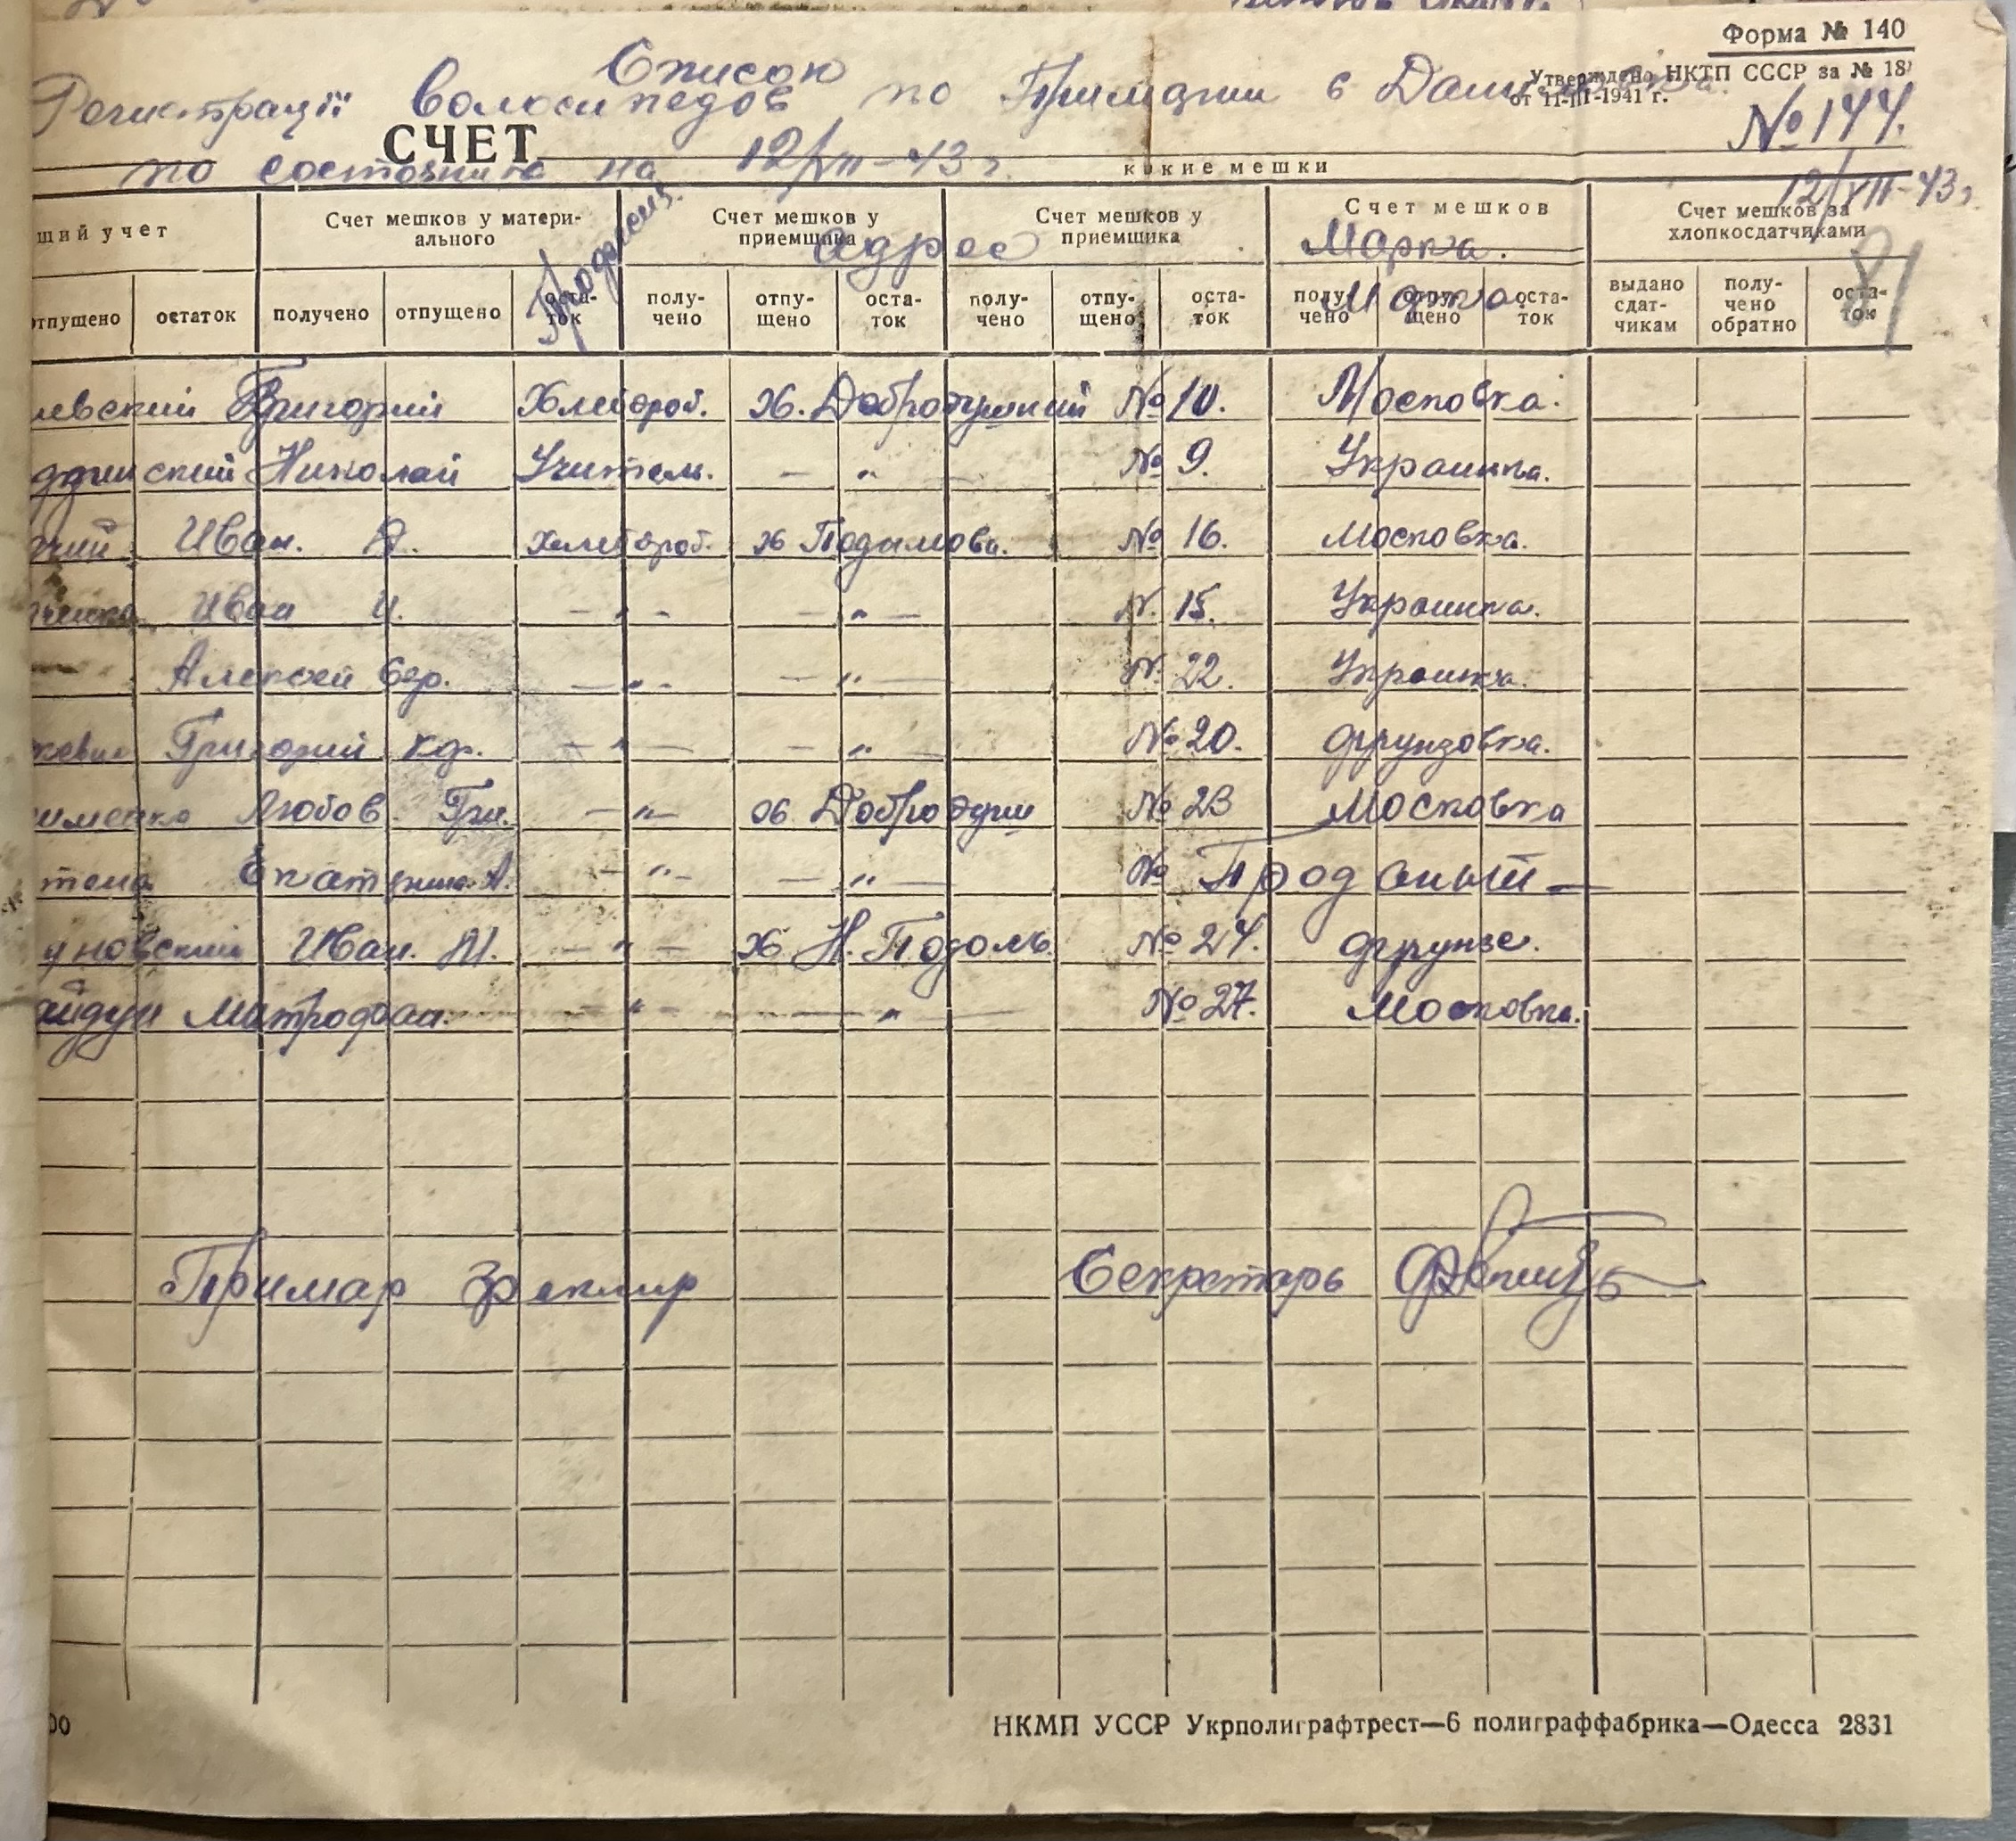 Форма № 140
Список
Утверждено НКТП СССР за № 18
от 11-III-1941 г.
Регистрації Велосипедов по Примарии с
№ 144.
СЧЕТ
по состоянию на 12/VII-43 г.
кокие мешки
12/VII-43 г.
щий учет
Счет мешков у матери-
ального
Счет мешков у
приемщика
Счет мешков у
приемщика
Счет мешков
Счет мешков за
хлопкосдатчиками
Адрес
Марка.
81
отпущено
остаток
получено
отпущено
оста-
ток
полу-
чено
отпу-
щено
оста-
ток
полу-
чено
отпу-
щено
оста-
ток
полу-
чено
отпу-
щено
оста-
ток
выдано
сдат-
чикам
полу-
чено
обратно
оста-
ток
левский Григорий Хлебороб. Х. № 10. Московка.
Николай Учитель. — " — № 9. Украинка.
Иван. Хлебороб. № 16. Московка.
Иван И. — " — — " — № 15. Украинка.
— Алексей — " — — " — № 22. Украинка.
Григорий — " — — " — № 20. Фрунзовка.
именко Любов. Гри. — " — № 23 Московка
Екатерина А. — " — — " — № Проданый —
уновский Иван. М. — " — Н. Подоль. № 24. Фрунзе.
айдун — " — — " — № 27. Московка.
Примар Секретарь
00
НКМП УССР Укрполиграфтрест—6 полиграффабрика—Одесса 2831